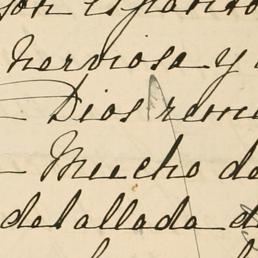 son espanto
nerviosa y
Dios rem
Mucho de
detallada d